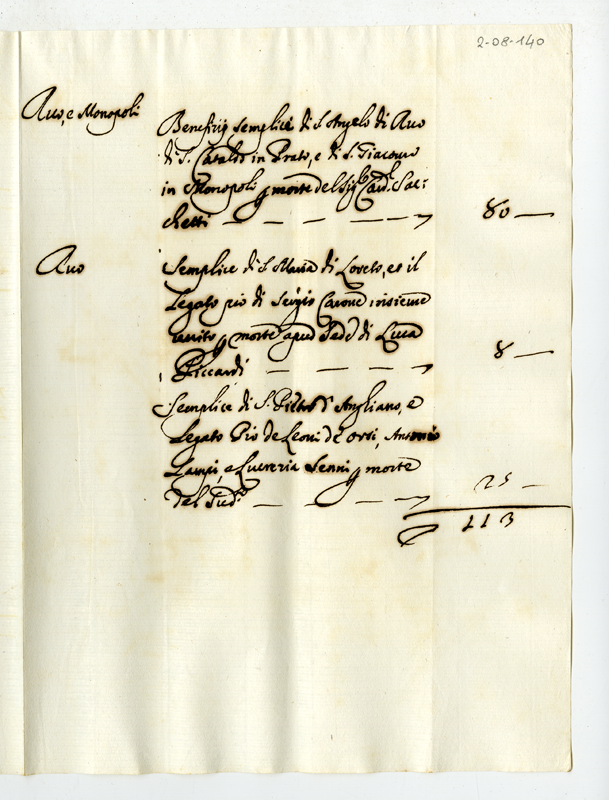 2-08-140
Ruo, e Monopoli
Benefizio semplice di S. Angelo di Ruo
di S. Cataldo in Prato, e di S. Giacomo
in Monopoli p morte del Sig.r Card.l Sac:
chetti 80
Ruo
Semplice di S. Maria di Loreto, et il
Legato pio di Sergio Carone insieme
unito p morte apud Sedẽ di Luca
Riccardi 8
Semplice di S. Pietro d' Angliano, e
Legato Pio de Leoni de Orsi, Antonio
Lampi, e Lucrezia Senni p morte
del Sud.o 25
113